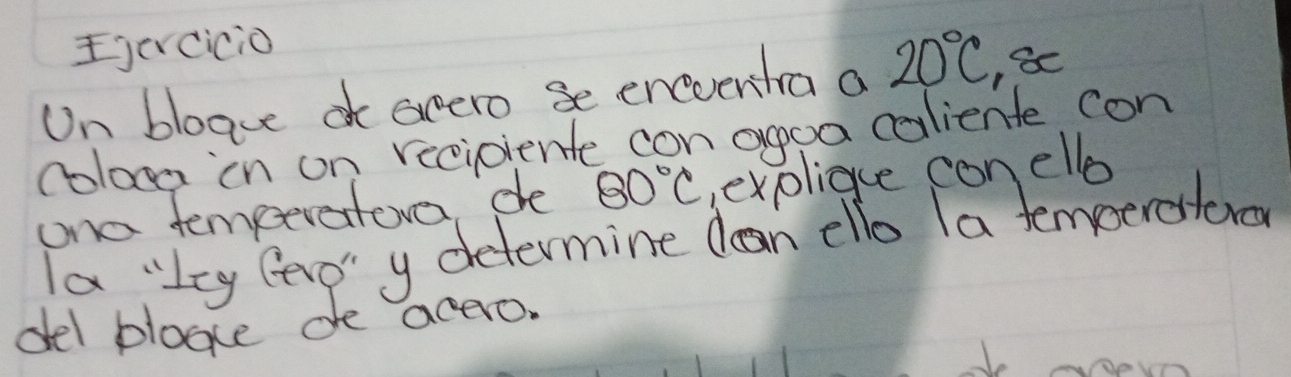 Ejercicio
Un bloque de acero se encuentra a 20°C, se
coloca en un recipiente con agua caliente con
una temperatura de 80°C, explique con ello
la "Ley Cero" y determine con ello la temperatura
del bloque de acero.
de acero